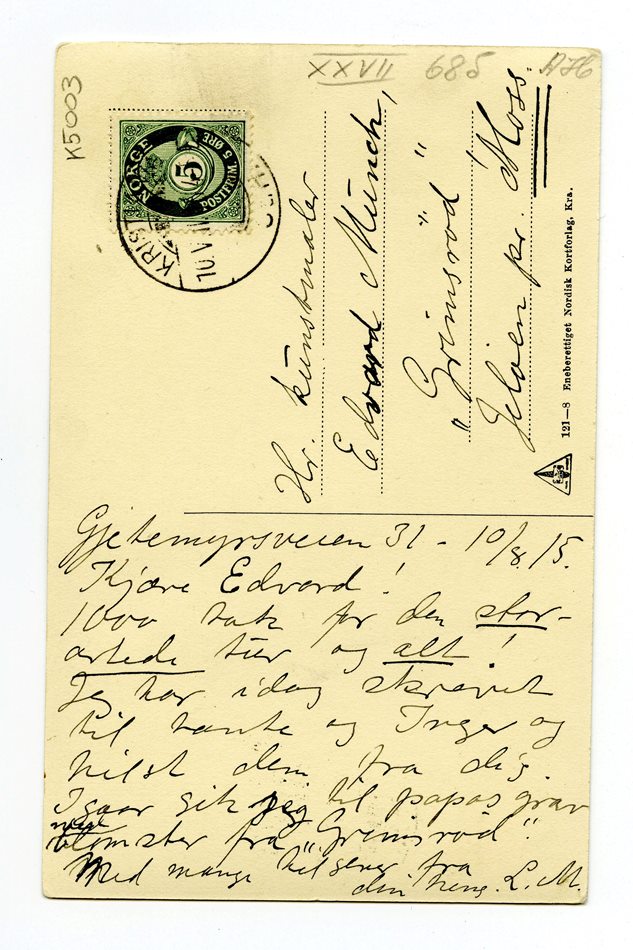 K5003
XXVII 685 AHb
NORGE
5
POSTFRIM. 5 ØRE
KRIST
10 VI
Hr. kunstmaler
Edvard Munch,
"Grimsrød"
Jeløen pr. Moss.
121—8 Eneberettiget Nordisk Kortforlag, Kra.
Gjetemyrsveien 31 - 10/8 15.
Kjære Edvard!
1000 takk for den stor-
artede tur og alt!
Jeg har idag skrevet
til tante og Inger og
hilst dem fra dig.
Igaar gik jeg til papas grav
med
blomster fra "Grimsrød".
Med mange hilsener fra
din heng. L. M.